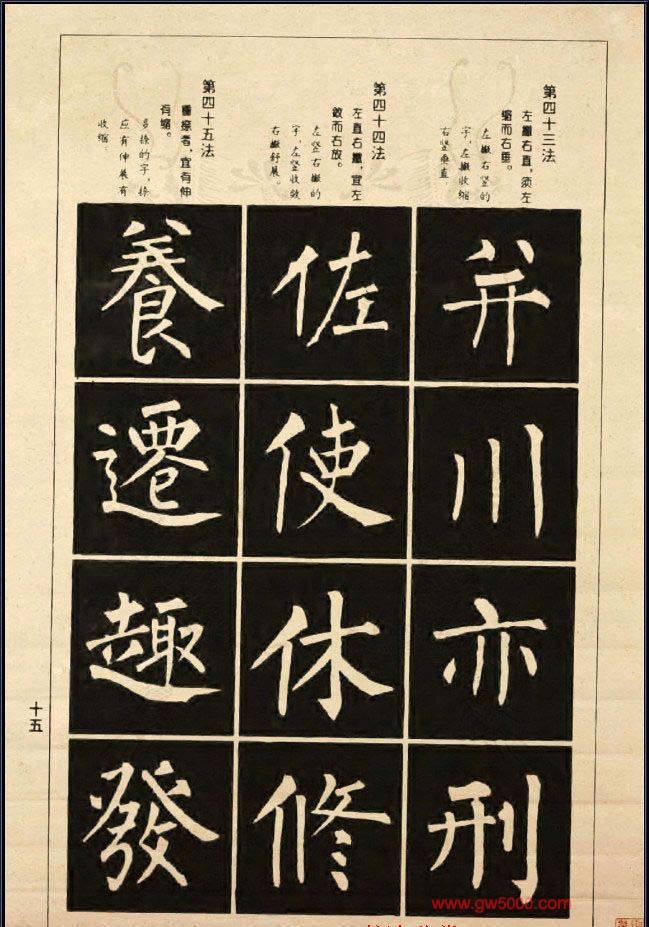 第四十三法
左撇右直，须左
缩而右垂。
左撇右竖的
字，左撇收缩
右竖垂直。
并川亦刑
第四十四法
左直右撇，宜左
敛而右放。
左竖右撇的
字，左竖收敛
右撇舒展。
佐使休修
第四十五法
重捺者，宜有伸
有缩。
多捺的字，捺
应有伸展有
收缩。
養遷趣發
十五
www.gw5000.com